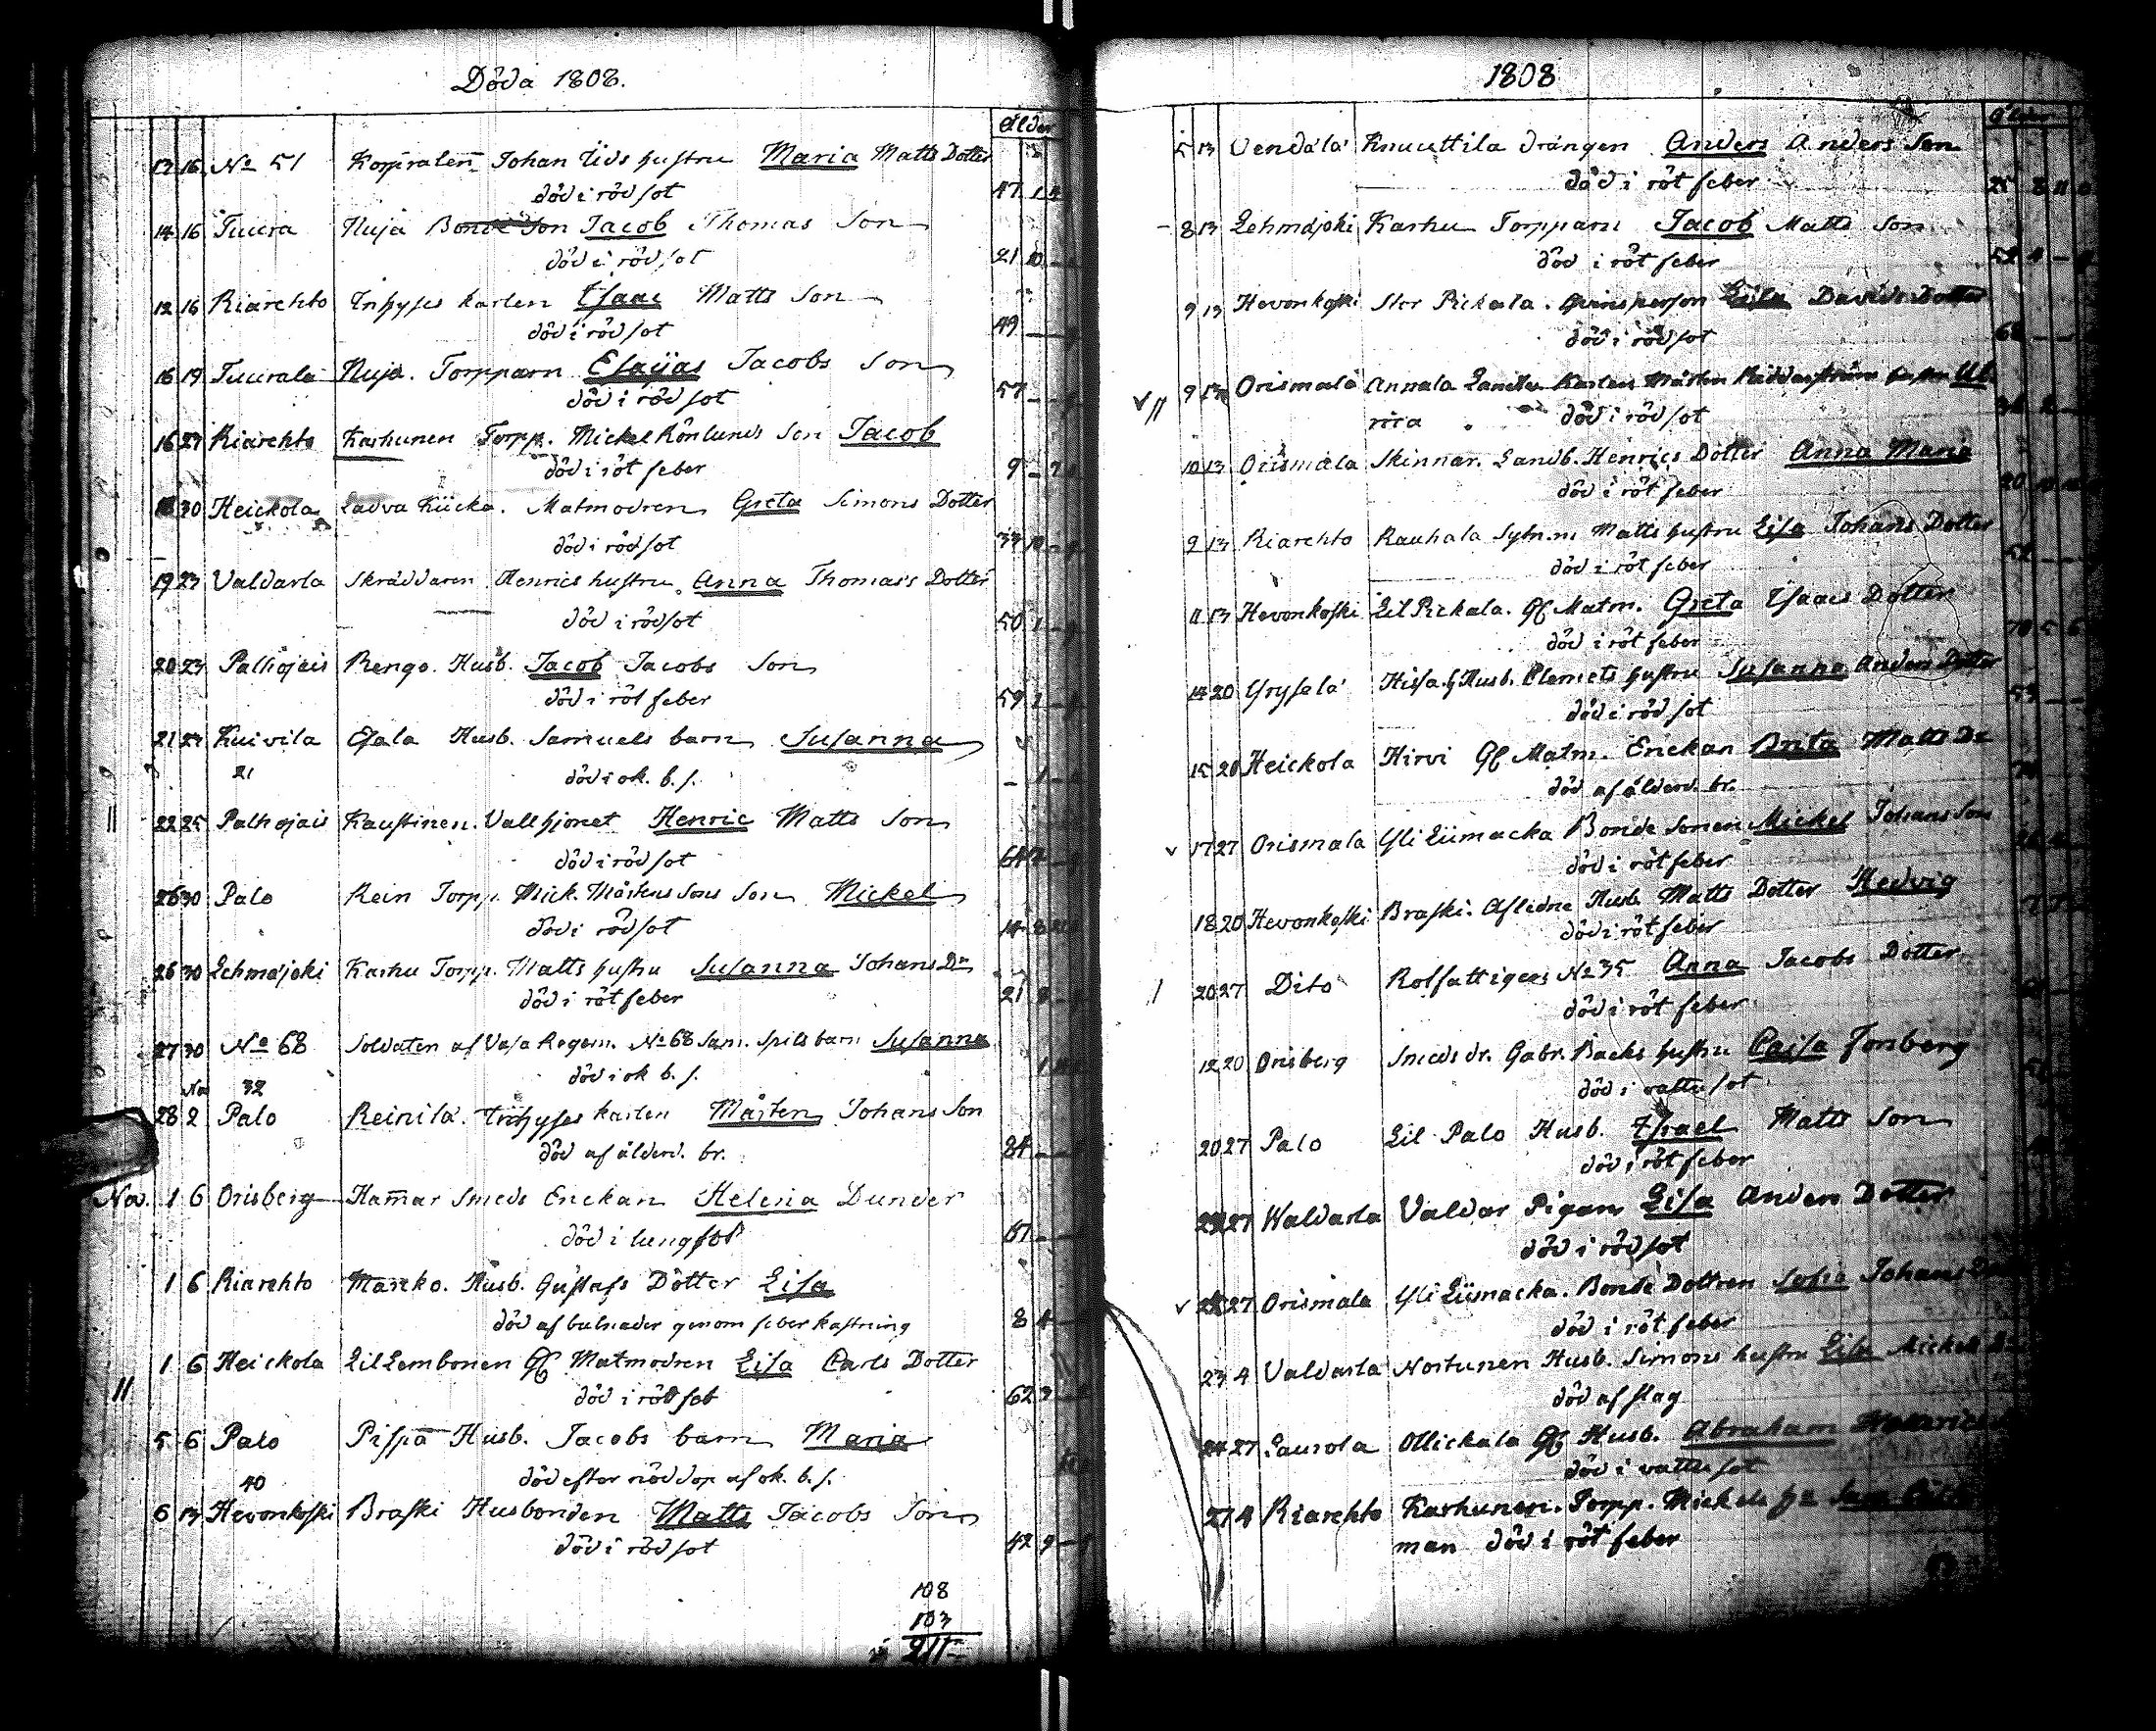 Döda 1808.
Ålder
13 16 No 51 Korpralen Johan Lids hustru Maria Matts Dotter
död i rödsot 47 1
14 16 Tuura Nuja Bonde Son Jacob Thomas Son
död i rödsot 21 10
12 16 Kiarehto Inhyses karlen Isaac Matts Son
död i rödsot 49
16 19 Tuurala Nuja. Torparn Esaijas Jacobs Son
död i rödsot 57
16 27 Kiarehto Karhunen Torpp. Mickel Rönlunds Son Jacob
död i röt feber 9
30 Heickola Ladva Kiicka. Matmodren Greta Simons Dotter
död i rödsot 33 10
19 23 Valdarla Skräddaren Henrics hustru Anna Thomas Dotter
död i rödsot 50 1
20 23 Palhojais Rengo. Husb. Jacob Jacobs Son
död i röt feber 59 1
21 23 Kuivila Esala Husb. Samuels barn Susanna
21 död i ok. b. s. 1
22 25 Palhojais Kaustinen. Vallhjonet Henric Matts Son
död i rödsot 64
26 30 Palo Rein Torpp. Mick. Mårtens Sons Son Mickel
död i rödsot 14 8
26 30 Lehmäjoki Karhu Torpp. Matts hustru Susanna Johans Dr
död i röt feber 21
27 30 No 68 Soldaten af Vasa Regem. No 68 Sam. Spils barn Susanna
32 död i ok b. s. 1
Nov
28 2 Palo Reinilä. Inhyses karlen Mårten Johans Son
död af ålderd. br. 84
Nov. 1 6 Orisberg Hamar Smeds Enckan Helena Dunder
död i lungsot 67
1 6 Kiarehto Marcko. Husb. Gustafs Dotter Lisa
död af bulnader genom feber kastning 8 4
1 6 Heickola Lil Lembonen Gf Matmodren Lisa Carls Dotter
död i rödsot 62 3
5 6 Palo Pispa Husb. Jacobs barn Maria
40 död efter nöddop af ok. b. s.
6 13 Hevonkoski Braski Husbonden Matts Jacobs Son
död i rödsot 42 9
108
103
211
1808
Ålder
5 13 Vendälä Knuuttila drängen Anders Anders Son
död i röt feber 25 8 11
8 13 Lehmäjoki Karhu Torpparn Jacob Matts Son
död i röt feber 52
9 13 Hevonkoski Stor Pickala. Qvinsperson Lisa Davids Dotter
död i rödsot 68
9 13 Orismala Annala Landtv. Karlen Mårten hustru Ul-
rica död i rödsot
10 13 Orismala Skinnar. Landb. Henrics Dotter Anna Maria
död i röt feber 20
9 13 Kiarehto Rauhala Sytn.m. Matts hustru Lisa Johans Dotter
död i röt feber
11 13 Hevonkoski Lil Pickala. Gf Matm. Greta Isaacs Dotter
död i röt feber 70 5 6
14 20 Yryselä Hissa. Husb. Clemets hustru Susanna Anders Dotter
död i rödsot 53
15 20 Heickola Hirvi Gf Matm. Enckan Anta Matts Dr
död af ålderd. br.
17 27 Orismala Yli Liimacka Bonde Sonen Mickel Johans Son
död i röt feber
18 20 Hevonkoski Braski. Aflidne Husb Matts Dotter Hedvig
död i röt feber
20 27 Dito Rotfattigers No 35 Anna Jacobs Dotter
död i röt feber
12 20 Orisberg Smeds dr. Gabr. Backs hustru Caisa Forsberg
död i vattusot
20 27 Palo Lil Palo Husb. Israel Matts Son
död i röt feber
27 Waldarla Valdar Pigan Lisa Anders Dotter
död i rödsot
27 Orismala Yli Liimacka. Bonde Dottren Sofia Johans Dr
död i röt feber
23 4 Valdarla Noitunen Husb. Simons hustru Lisa Mickels
död af slag
24 27 Laurola Ollickala Gf Husb. Abraham
död i vattusot
27 4 Kiarehto Karhunen. Torpp. Mickels
man död i röt feber